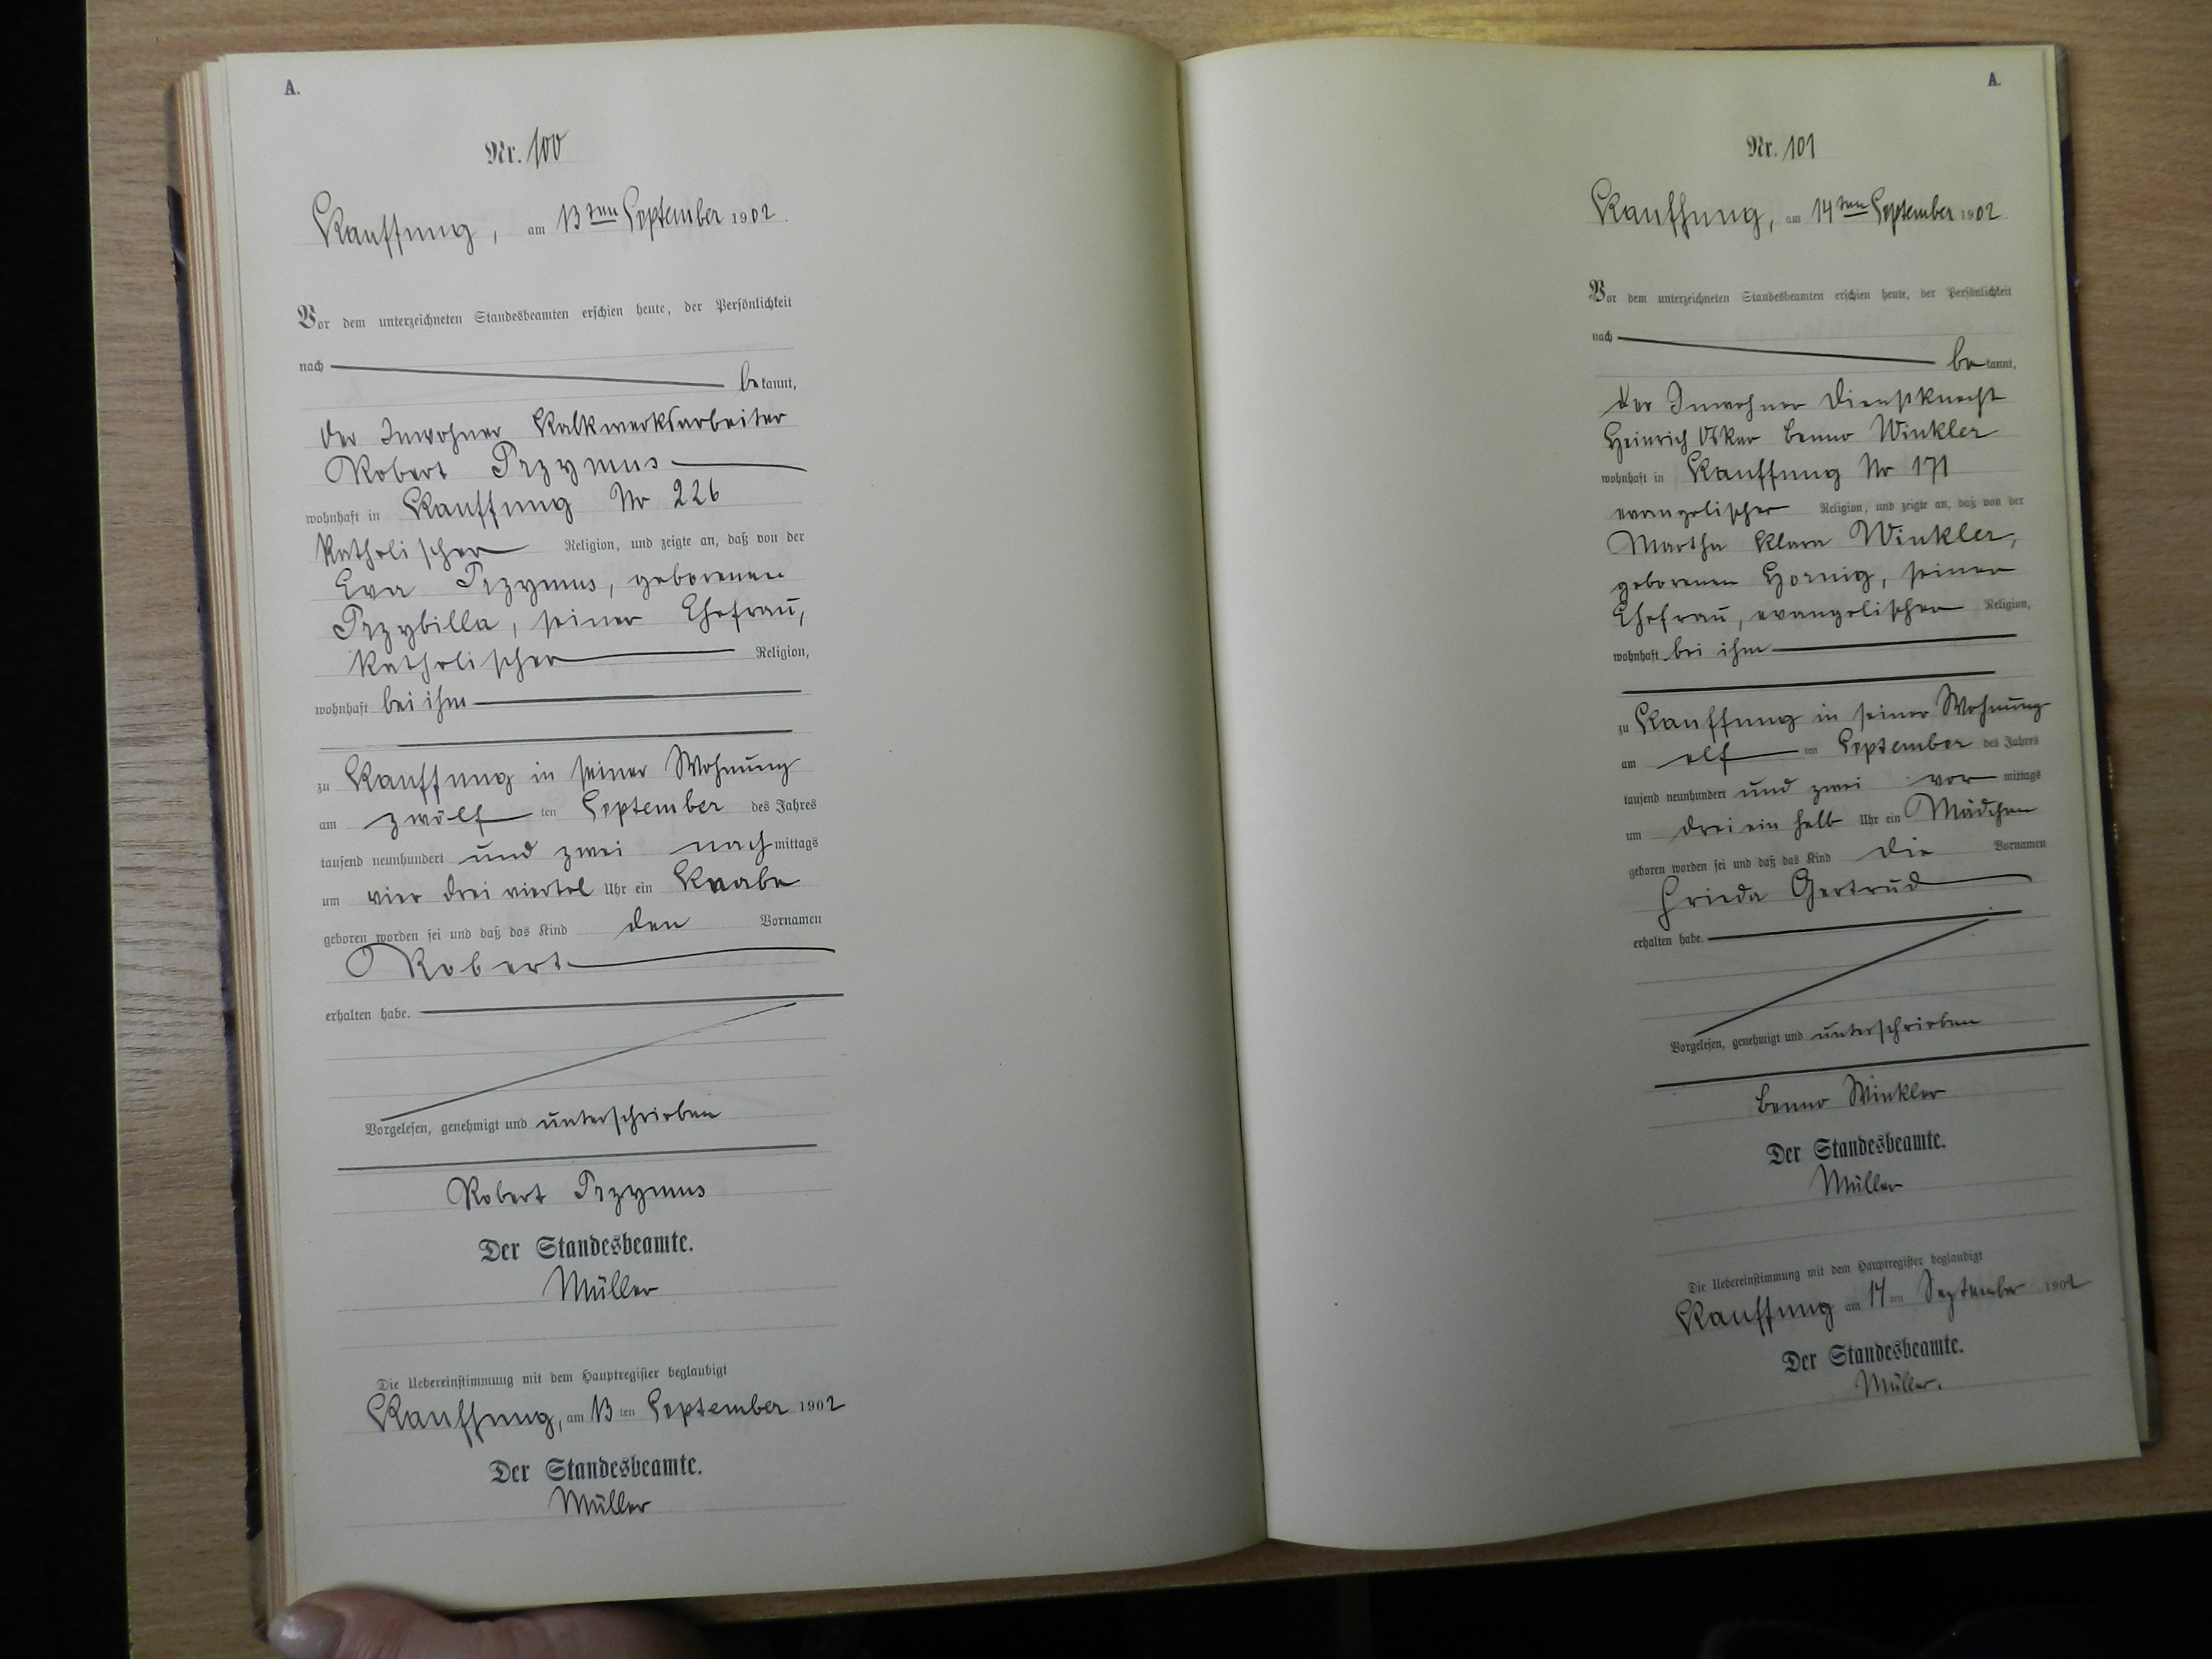 A.
Nr. 100
Kauffung, am 13ten September 1902.
Vor dem unterzeichneten Standesbeamten erschien heute, der Persönlichkeit
nach bekannt,
der Inwohner Kalkwerksarbeiter
Robert Przymus
wohnhaft in Kauffung Nr 226
katholischer Religion, und zeigte an, daß von der
Eva Przymus, geborenen
Przybilla, seiner Ehefrau,
katholischer Religion,
wohnhaft bei ihm
zu Kauffung in seiner Wohnung
am zwölf ten September des Jahres
tausend neunhundert und zwei nachmittags
um vier drei viertel Uhr ein Knabe
geboren worden sei und daß das Kind den Vornamen
Robert
erhalten habe.
Vorgelesen, genehmigt und unterschrieben
Robert Przymus
Der Standesbeamte.
Müller
Die Uebereinstimmung mit dem Hauptregister beglaubigt
Kauffung, am 13 ten September 1902
Der Standesbeamte.
Müller
A.
Nr. 101
Kauffung, am 14ten September 1902.
Vor dem unterzeichneten Standesbeamten erschien heute, der Persönlichkeit
nach bekannt,
der Inwohner Dienstknecht
Heinrich Oskar Benno Winkler
wohnhaft in Kauffung Nr 171
evangelischer Religion, und zeigte an, daß von der
Martha Klara Winkler,
geborenen Hornig, seiner
Ehefrau, evangelischer Religion,
wohnhaft bei ihm
zu Kauffung in seiner Wohnung
am elf ten September des Jahres
tausend neunhundert und zwei vor mittags
um drei ein halb Uhr ein Mädchen
geboren worden sei und daß das Kind die Vornamen
Frieda Gertrud
erhalten habe.
Vorgelesen, genehmigt und unterschrieben
Benno Winkler
Der Standesbeamte.
Müller
Die Uebereinstimmung mit dem Hauptregister beglaubigt
Kauffung am 14 ten September 1902
Der Standesbeamte.
Müller.